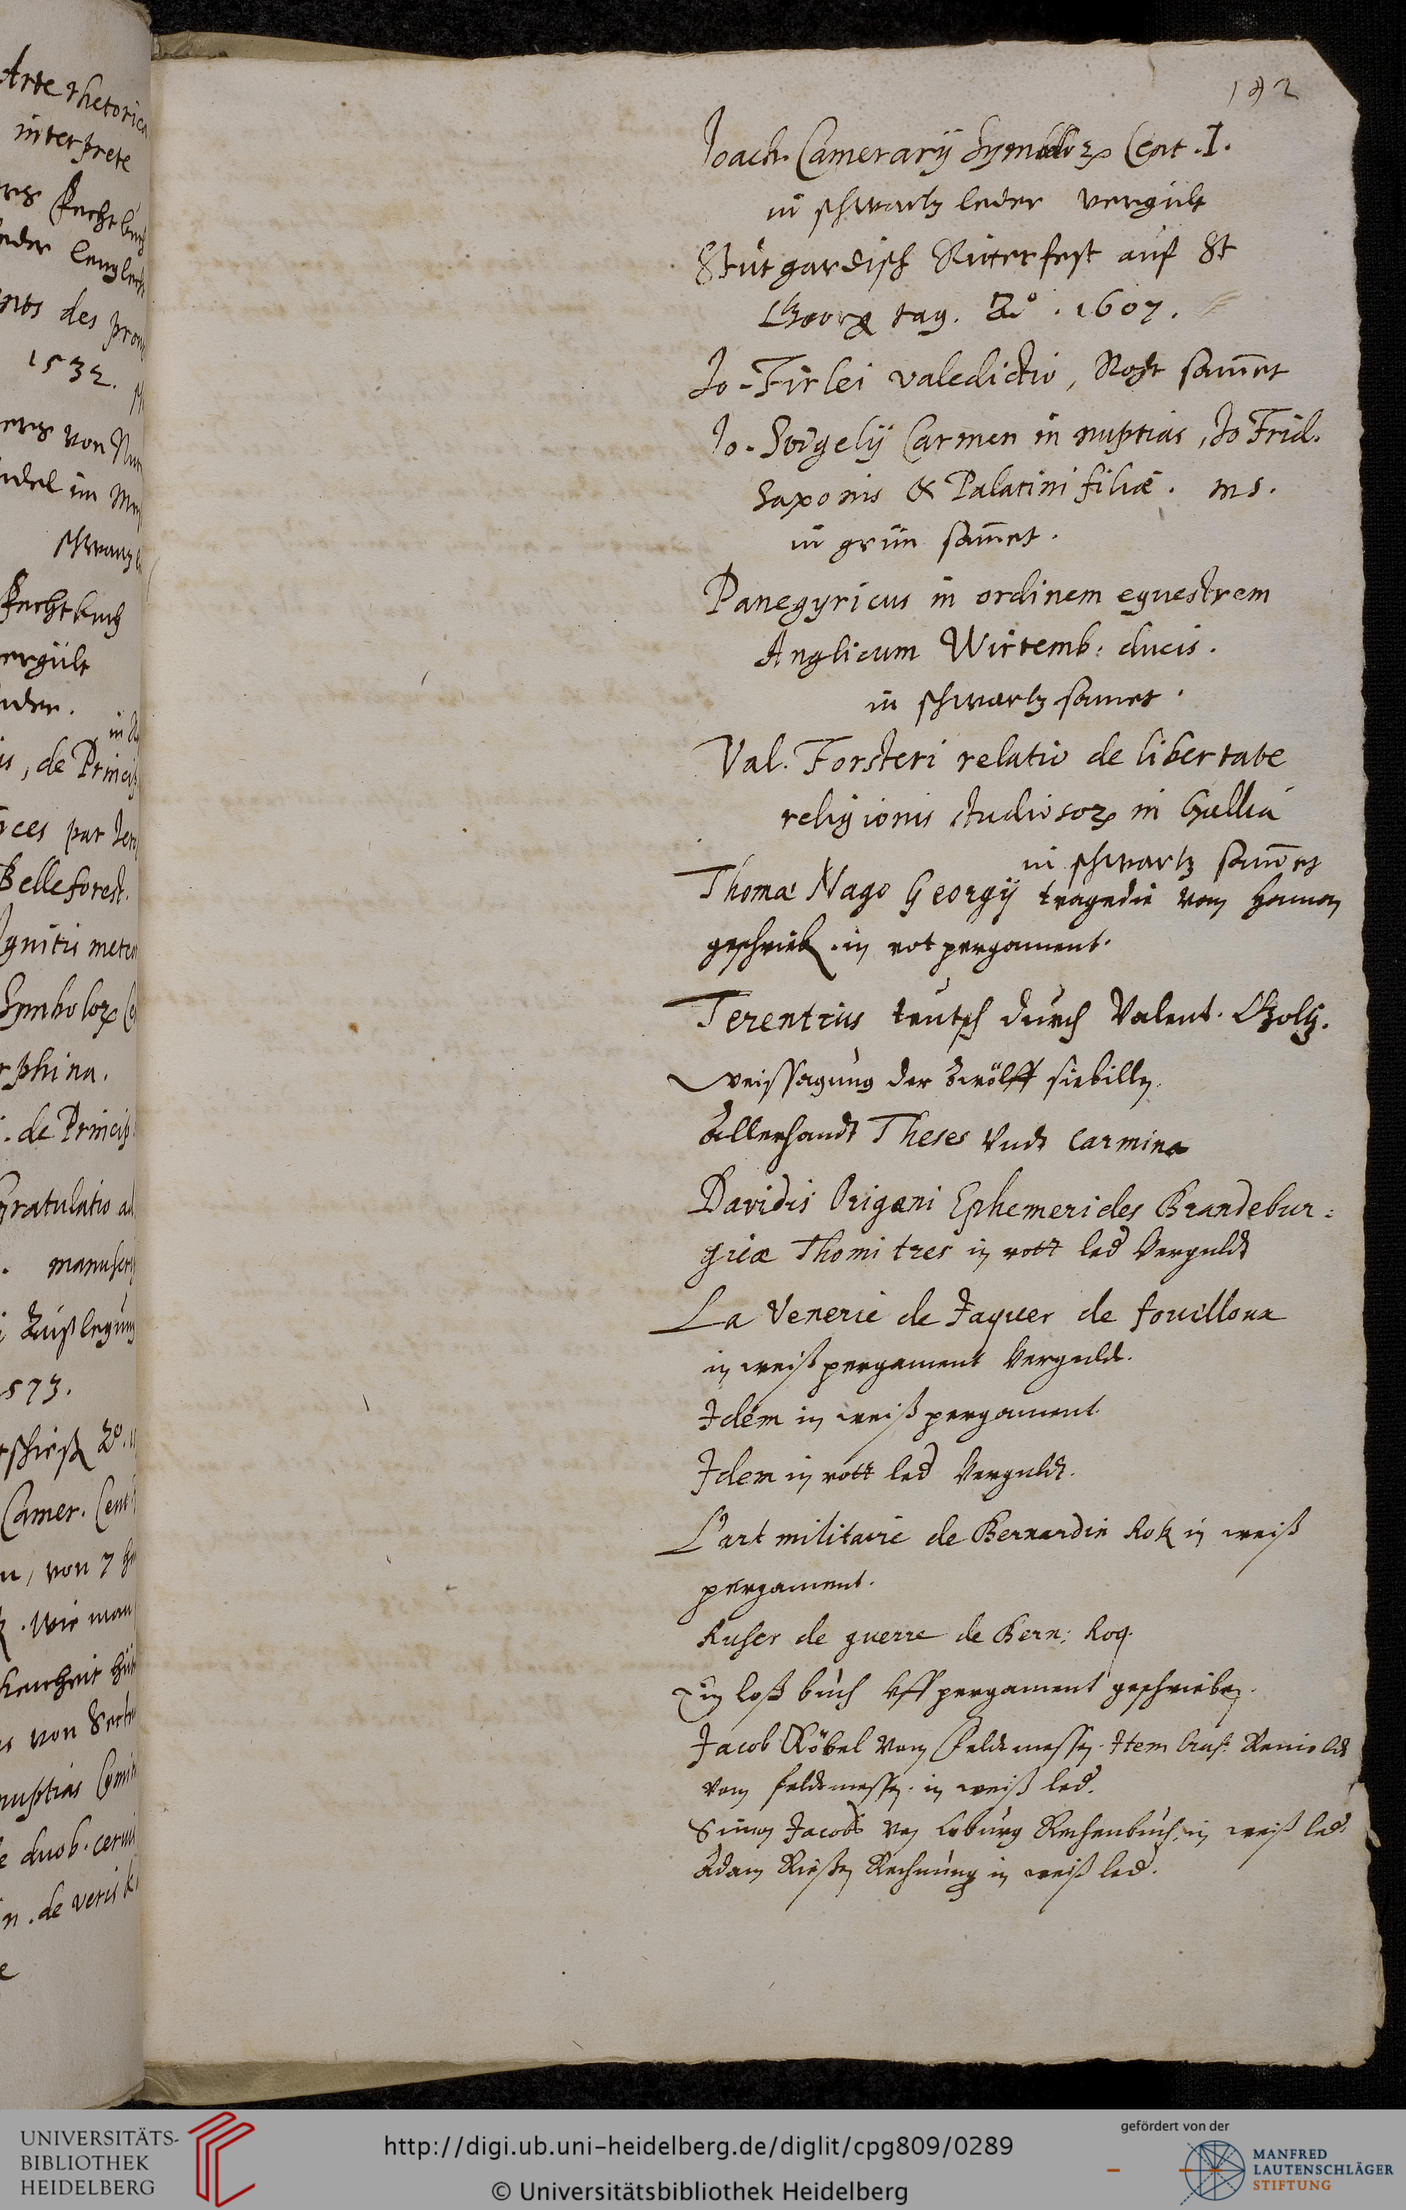 Arte rhetorica
interprete
des prom
1532.
Fechtbuch
vergült
in
de Princip
Belleforest.
Ignitis meteo
rphina.
. de Princip
Gratulatio ad
manuscri
Außlegung
1573.
Camer. Cent
von 7
. Wie man
von
nuptias
duob. cervis
. de veris
192
Joach. Camerarÿ Symbolorꝝ Cent. I.
in schwartz leder vergült
Stutgardisch Ritterfest auf St
Georg tag. Aº. 1607.
Jo. Firlei valedictio, Roht sam̄et
Jo. Carmen in nuptias, Jo Frid.
Saxonis & Palatini filiæ. ms.
in grün sam̄et.
Panegyricus in ordinem equestrem
Anglicum Wirtemb: ducis.
in schwartz samet.
Val. Forsteri relatio de libertate
religionis studiosorꝝ in Gallia
in schwartz sam̄et
Thomæ Nago Georgÿ tragedie von Haman
geschrieb. in rot pergament.
Terentius teutsch durch Valent. Boltz.
weissagung der zwölff siebillen
Allerhandt Theses vndt Carmina
Davidis Origani Ephemerides Brandebur:
gicæ Thomi tres in rott led verguldt
La Venerie de Jaques de fouilloux
in weiß pergament verguldt.
Idem in weiß pergament
Idem in rott led verguldt.
L'art militaire de Bernardin Rok in weiß
pergament.
Ruses de guerre de Bern: Roq.
Ein loß buch vff pergament geschrieben.
Jacob Köbel vom feldtmessen. Item Eras: Reinoldt
vom feldtmessen. in weiß led.
Simon Jacobs von Coburg Rechenbuch, in weiß led.
Adam Rießen Rechnung in weiß led.
UNIVERSITÄTS-
BIBLIOTHEK
HEIDELBERG
http://digi.ub.uni-heidelberg.de/diglit/cpg809/0289
© Universitätsbibliothek Heidelberg
gefördert von der
MANFRED
LAUTENSCHLÄGER
STIFTUNG